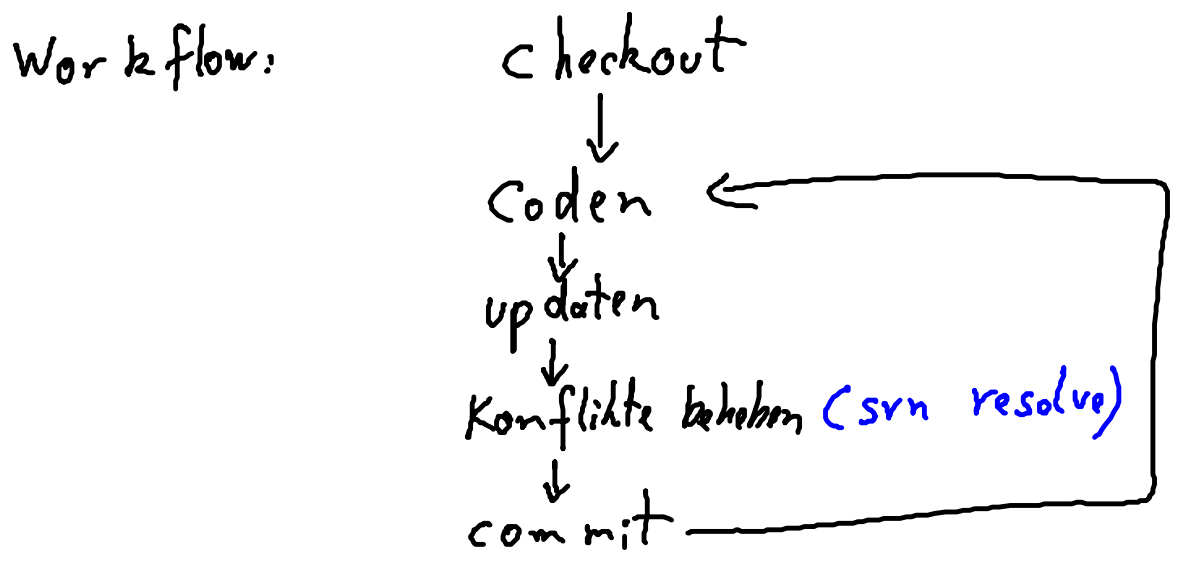 Workflow: checkout
Coden
updaten
Konflikte beheben (svn resolve)
commit